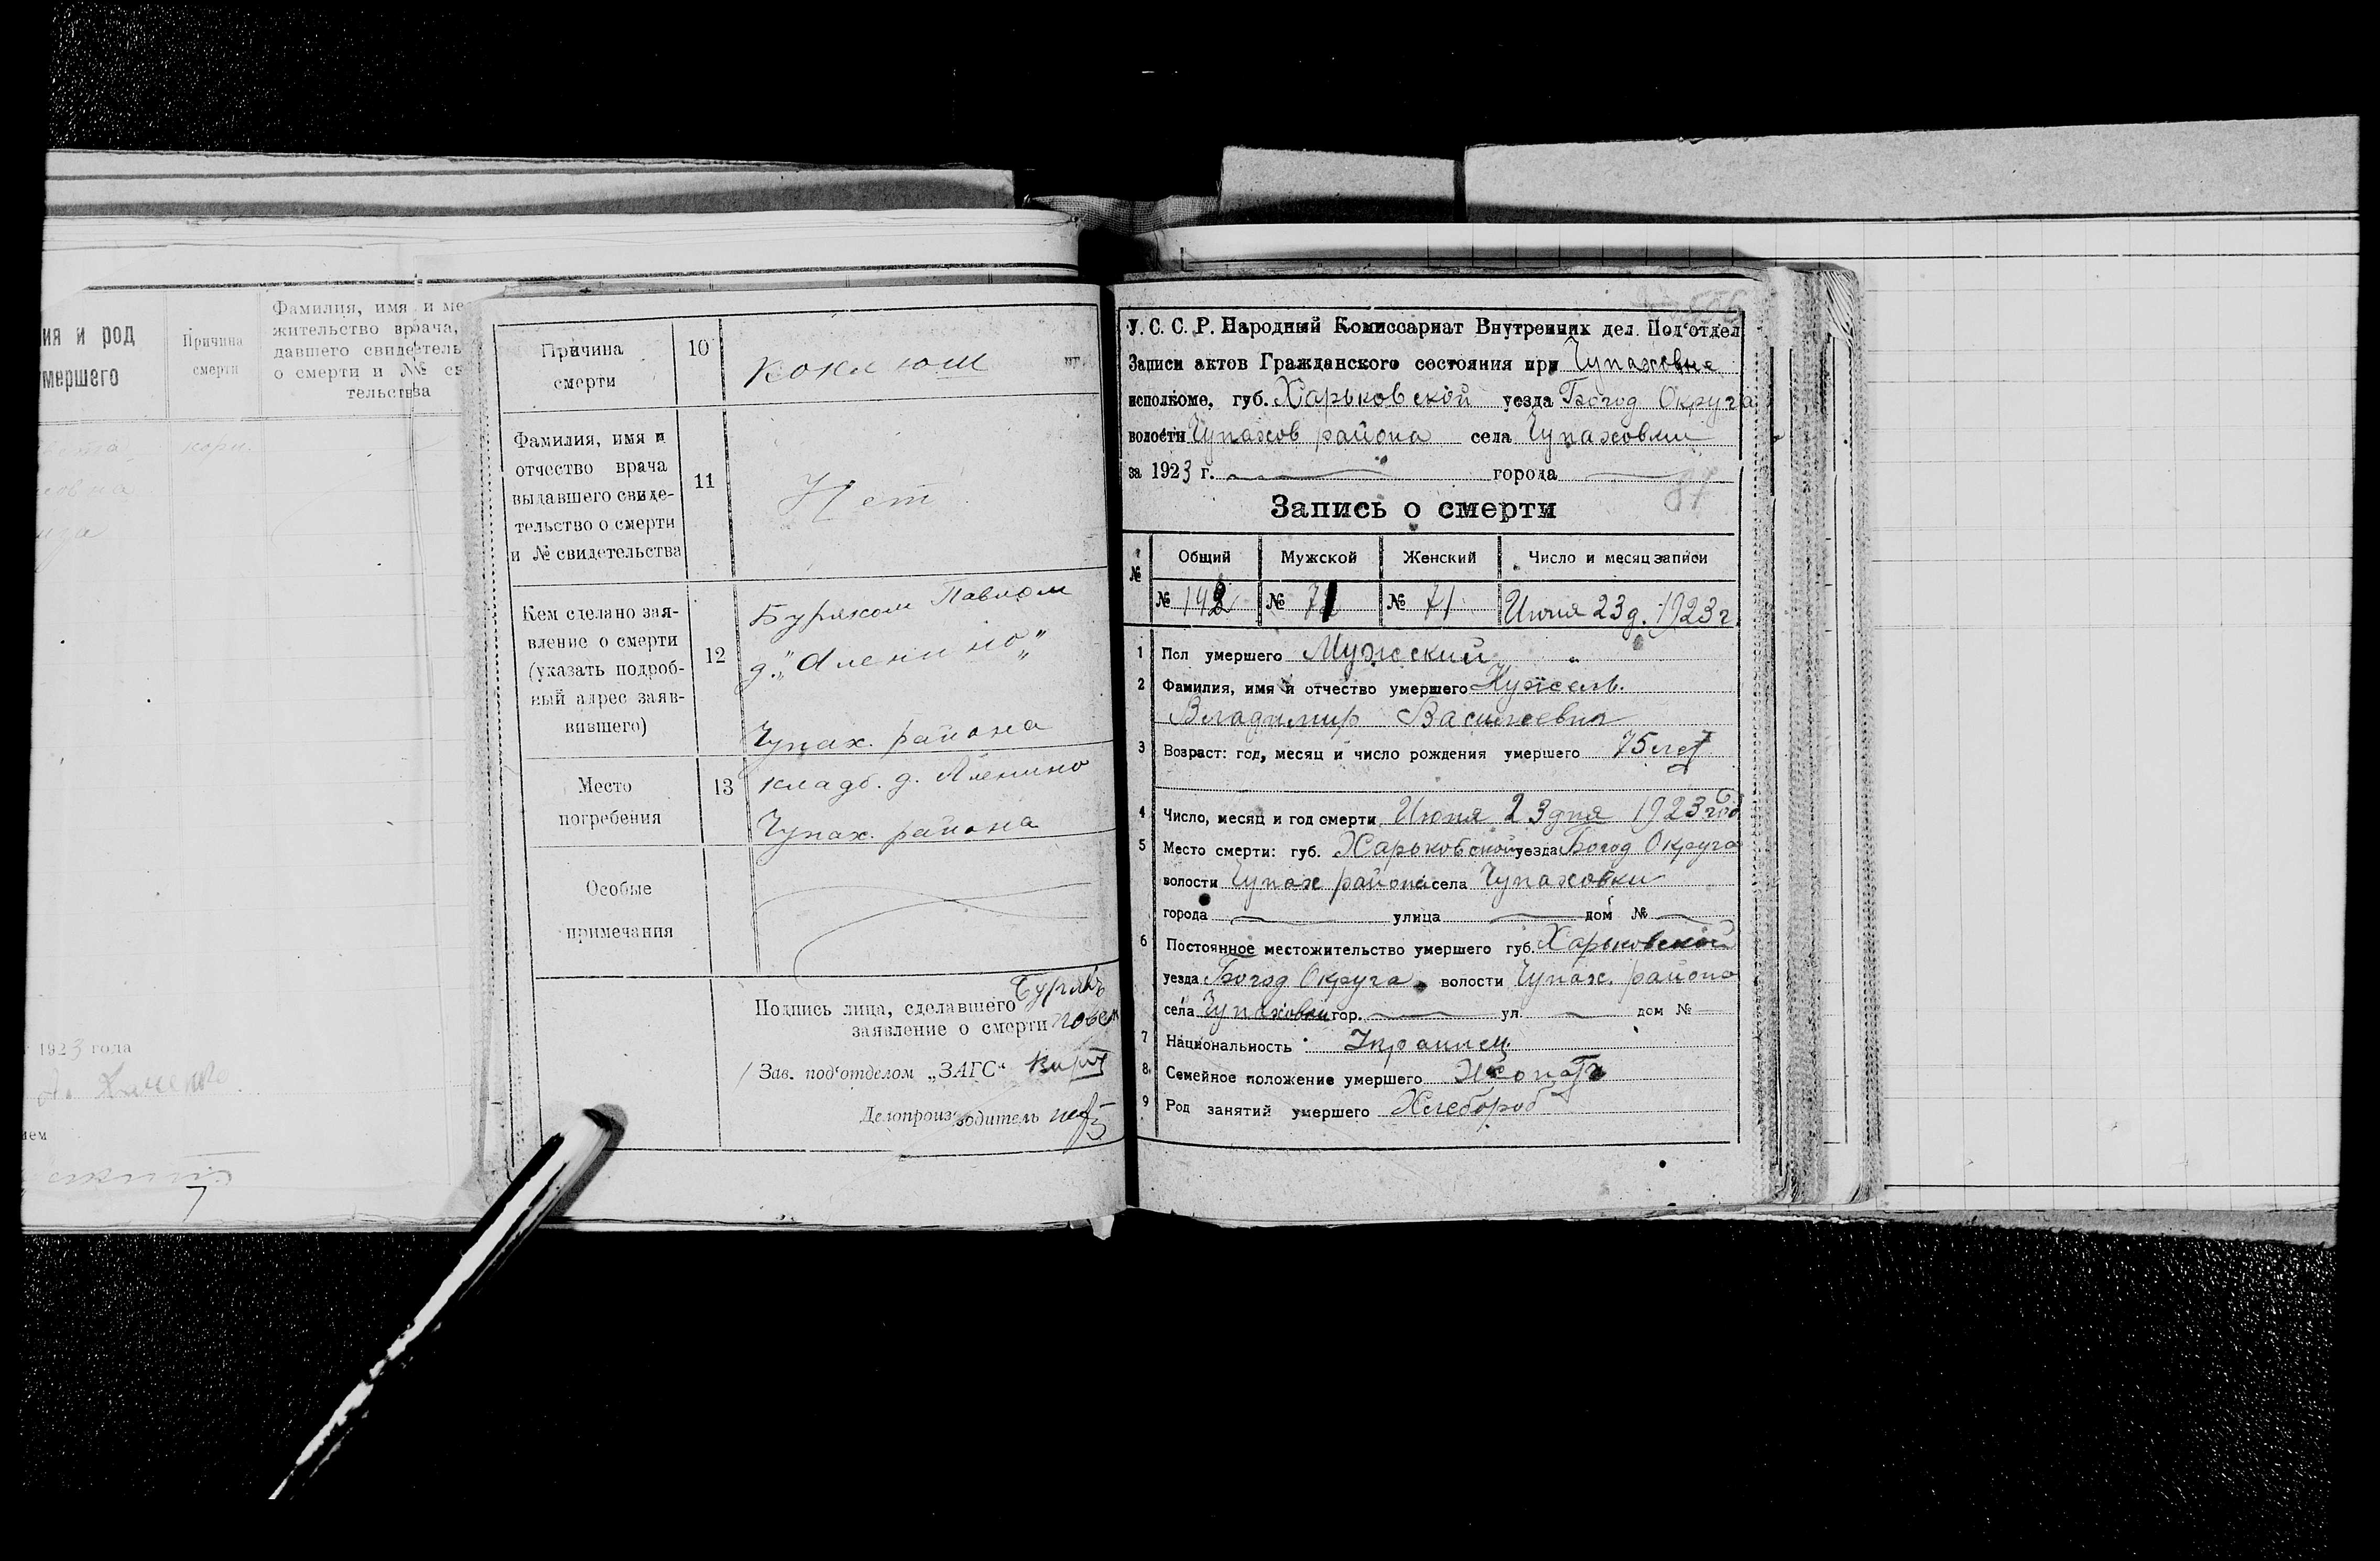 ия и род
умершего
Причина
смерти
Фамилия, имя и ме
жительство врача,
давшего свидетель
о смерти и №№ св
тельства
1923 года
Причина
смерти
10
коклюш
Фамилия, имя и
отчество врача
выдавшего свиде-
тельство о смерти
и № свидетельства
11
Нет
Кем сделано зая-
вление о смерти
(указать подроб-
ный адрес заяв-
вившего)
12
Буряком Павлом
д. „Аленино"
Чупах. района
Место
погребения
13
кладб. д. Аленино
Чупах. района
Особые
примечания
Подпись лица, сделавшего Буряк
заявление о смерти
Зав. под'отделом „ЗАГС"
Делопроизводитель
У. С. С. Р. Народный Комиссариат Внутренних дел. Под'отдел
Записи актов Гражданского состояния при Чупаховке
исполкоме, губ. Харьковской уезда Богод Округа
волости Чупахов района села Чупаховки
за 1923 г. города
87
Запись о смерти
№ Общий Мужской Женский Число и месяц записи
№ 142 № 71 № 71 Июня 23 д. 1923 г
1 Пол умершего Мужский
2 Фамилия, имя и отчество умершего
Владимир Васильевич
3 Возраст: год, месяц и число рождения умершего 75 лет
4 Число, месяц и год смерти Июня 23 дня 1923 год
5 Место смерти: губ. Харьковской уезда Богод Округа
волости Чупах района села Чупаховки
города улица дом №
6 Постоянное местожительство умершего губ. Харьковской
уезда Богод Округа волости Чупах. района
села Чупаховки гор. ул. дом №
7 Национальность Украинец
8 Семейное положение умершего Женат
9 Род занятий умершего Хлебороб